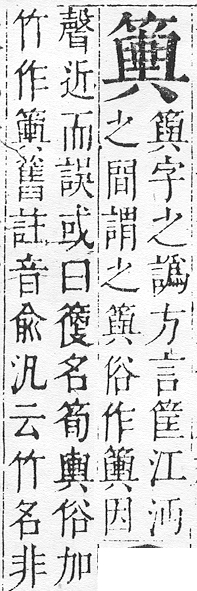 籅字之譌方言筐江沔
之間謂之籅俗作因
聲近而誤或曰名筍輿俗加
竹作舊註音兪汎云竹名非